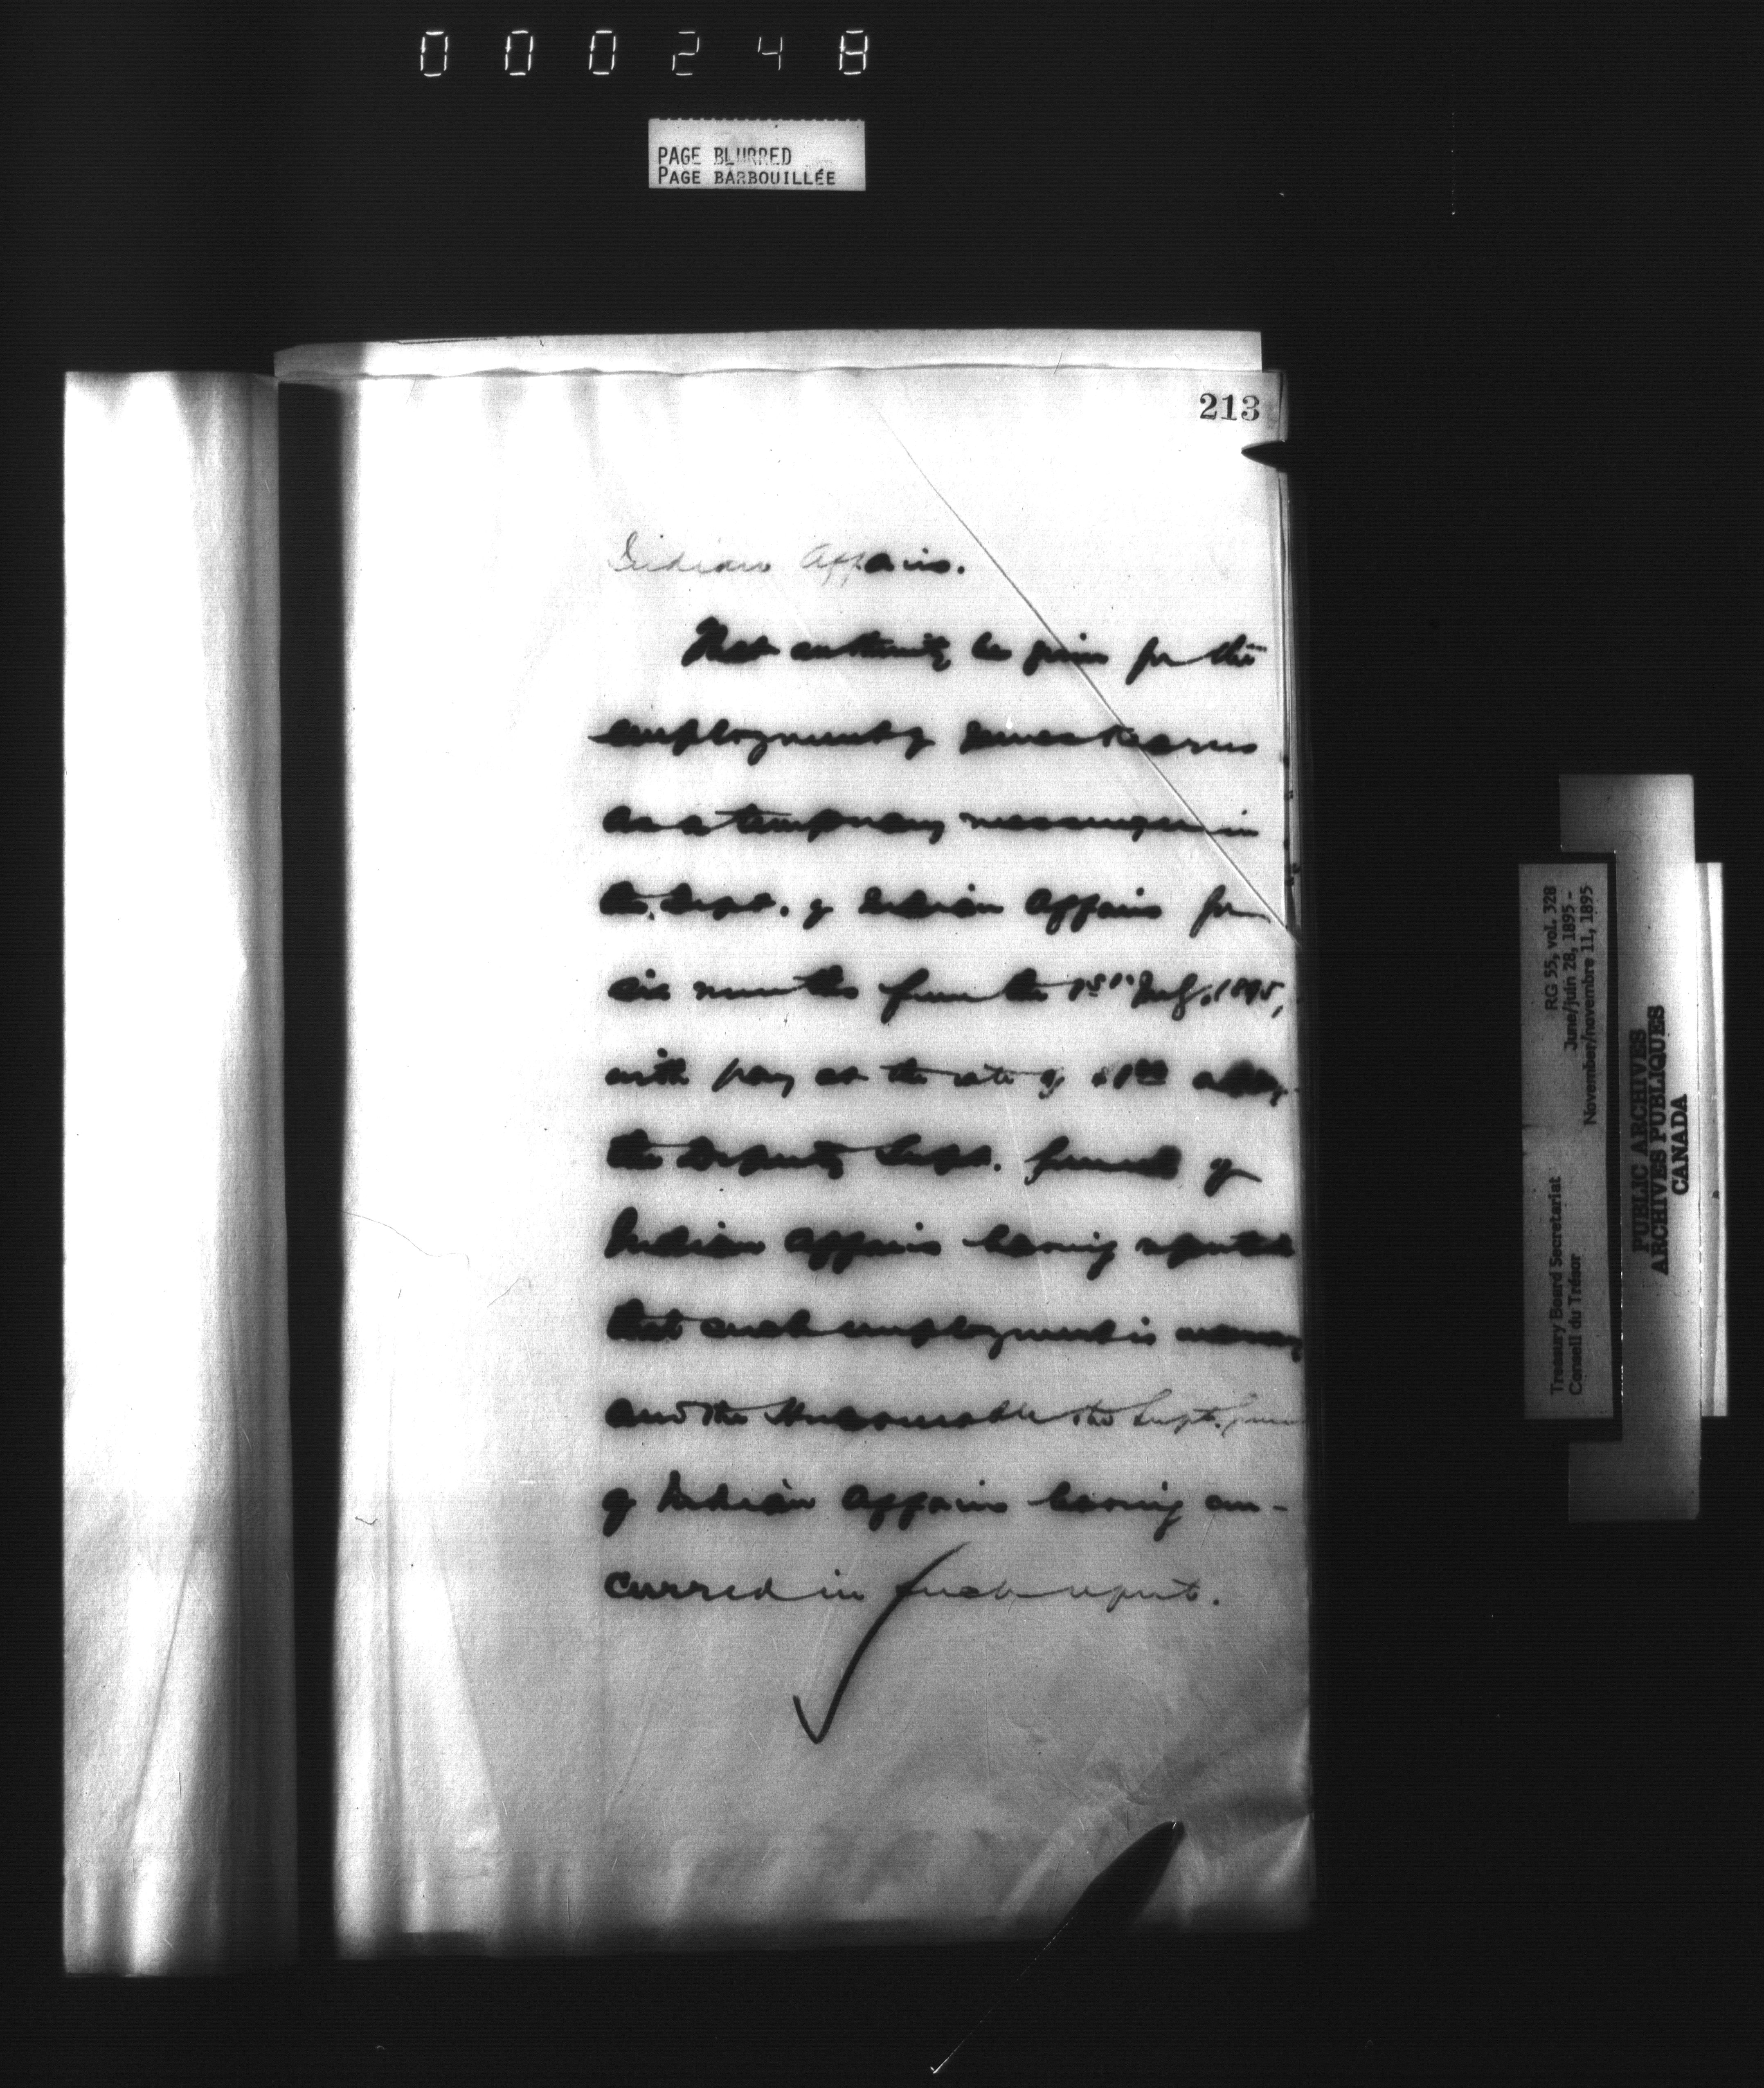 000248
PAGE BLURRED
PAGE BARBOUILLÉE
213
Indian Affairs.
That authority be given for the
employment of James Kearns
as a temporary messenger in
the Dept. of Indian Affairs for
six months from the 1st July, 1895,
with pay at the rate of $1.00 a day,
the Deputy Supt. General of
Indian Affairs having reported
that such employment is necessary
and the Honourable the Supt. General
of Indian Affairs having con-
curred in such report.
RG 55, vol. 328
June/juin 28, 1895 -
November/novembre 11, 1895
Treasury Board Secretariat
Conseil du Trésor
PUBLIC ARCHIVES
ARCHIVES PUBLIQUES
CANADA